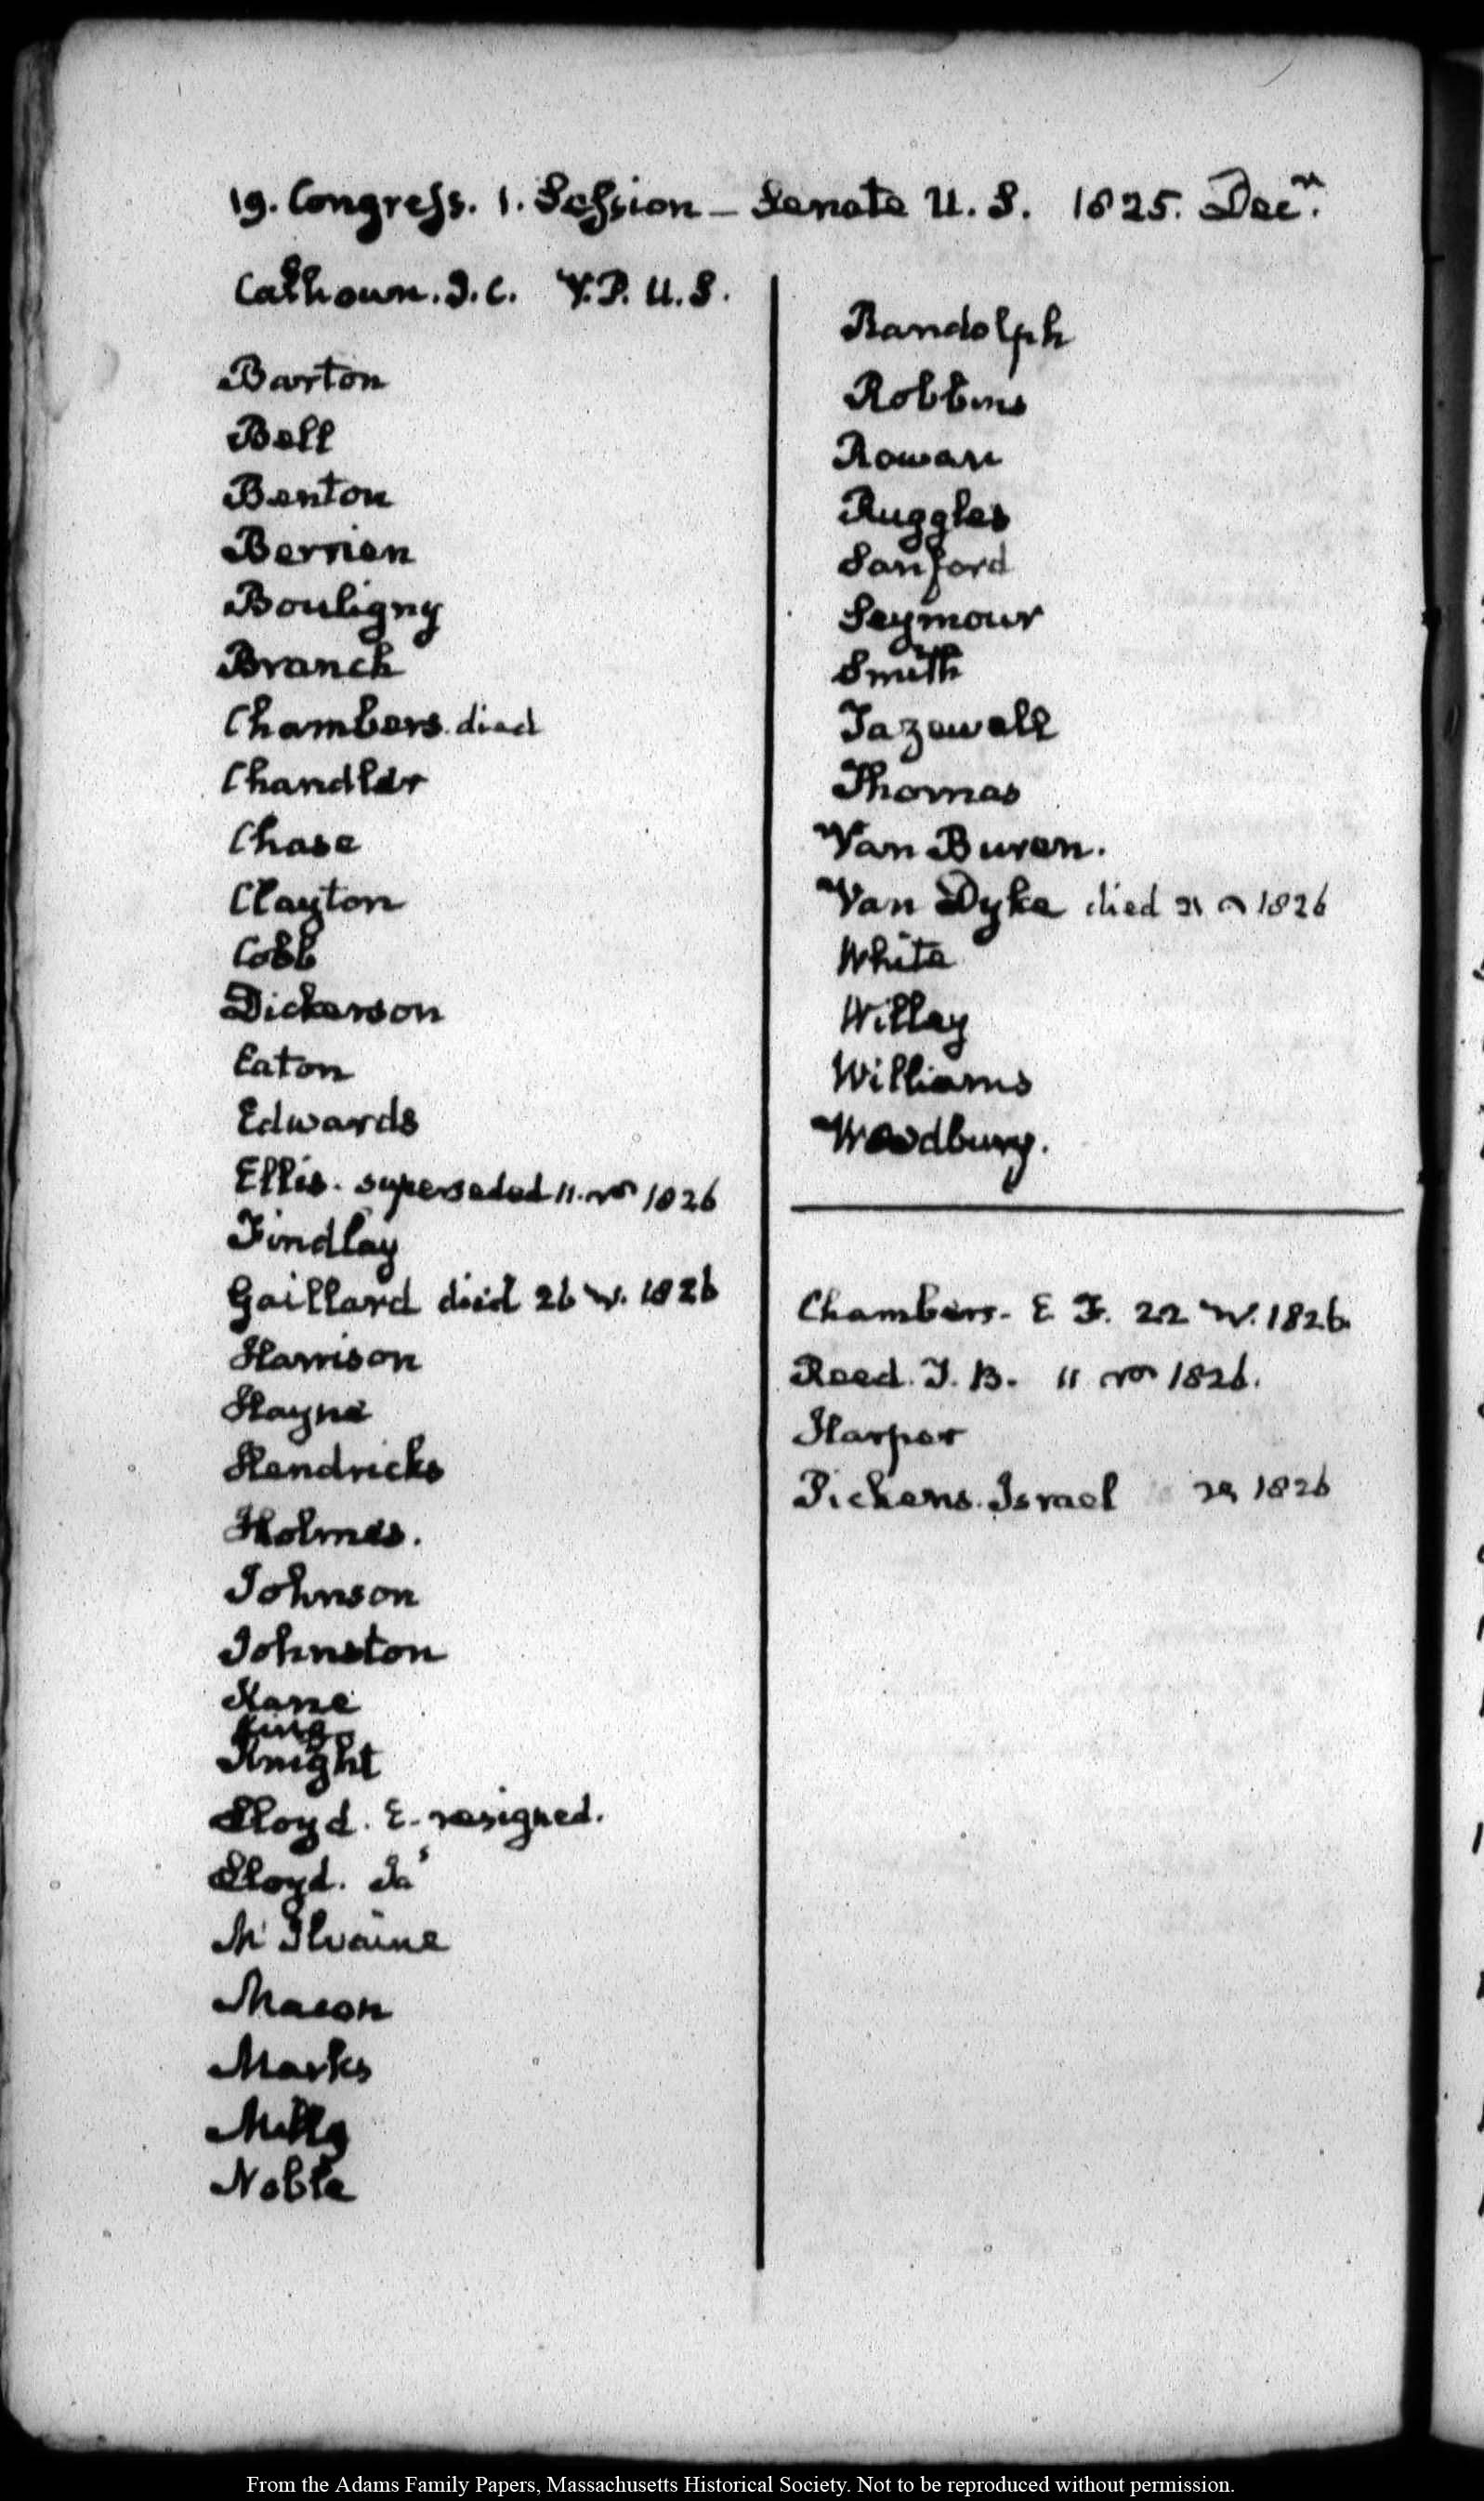 19. Congress. 1. Session — Senate U. S. 1825. Decr.
Calhoun. J. C. V. P. U. S.
Barton
Bell
Benton
Berrien
Bouligny
Branch
Chambers. died
Chandler
Chase
Clayton
Cobb
Dickerson
Eaton
Edwards
Ellis. superseded 11. 1826
Findlay
Gaillard died 26 1826
Harrison
Hayne
Hendricks
Holmes.
Johnson
Johnston
Kane
King
Knight
Lloyd. E. resigned.
Lloyd. Jas
McIlvaine
Macon
Marks
Mills
Noble
Randolph
Robbins
Rowan
Ruggles
Sanford
Seymour
Smith
Tazewell
Thomas
Van Buren.
Van Dyke died 21 1826
White
Willey
Williams
Woodbury.
Chambers. E F. 22 1826
Reed. T. B. 11 1826.
Harper
Pickens. Israel 1826
From the Adams Family Papers, Massachusetts Historical Society. Not to be reproduced without permission.